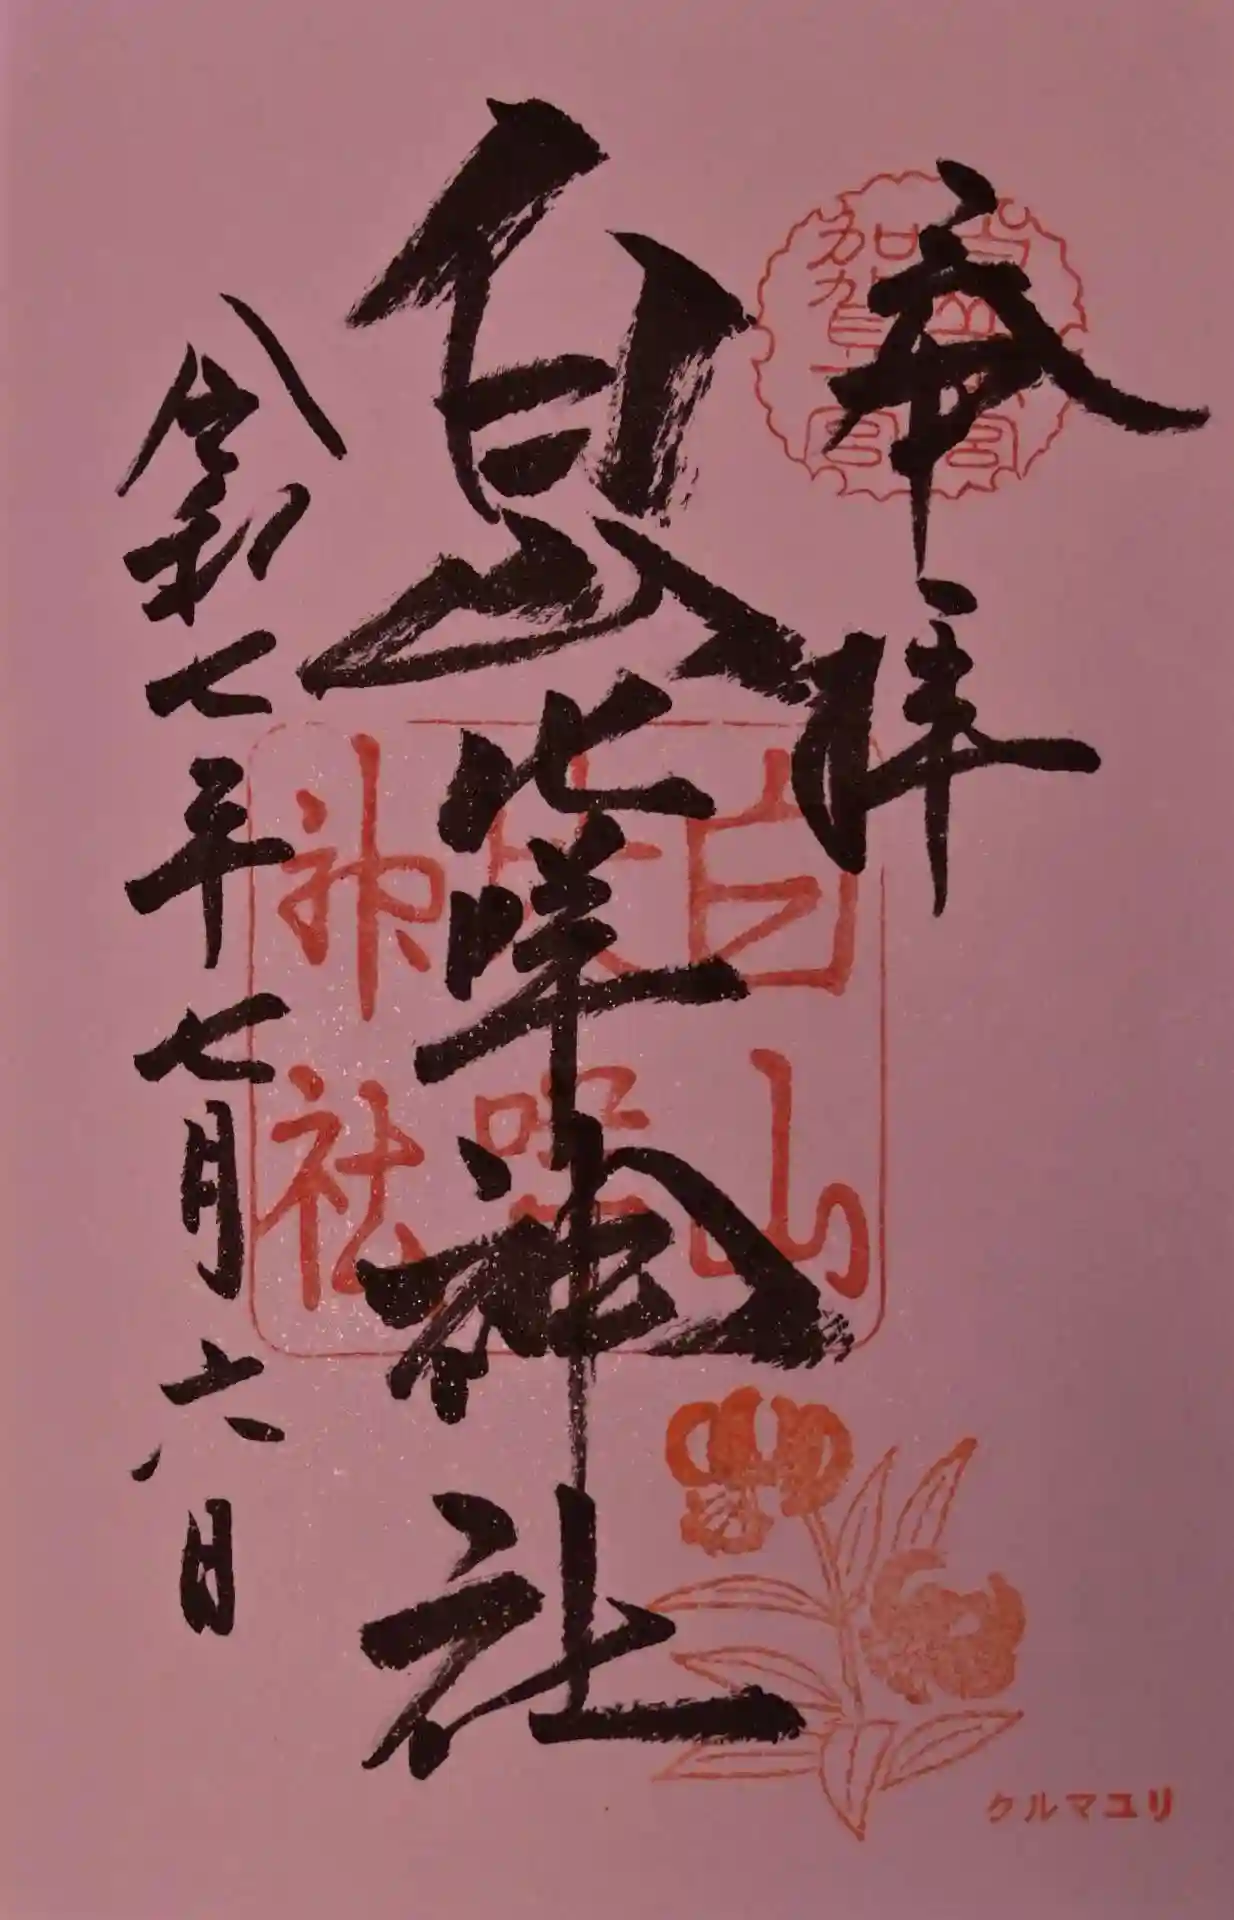 奉拝
白山本宮
加賀一宮
白山比咩神社
白山
比咩
神社
令和七年七月六日
クルマユリ